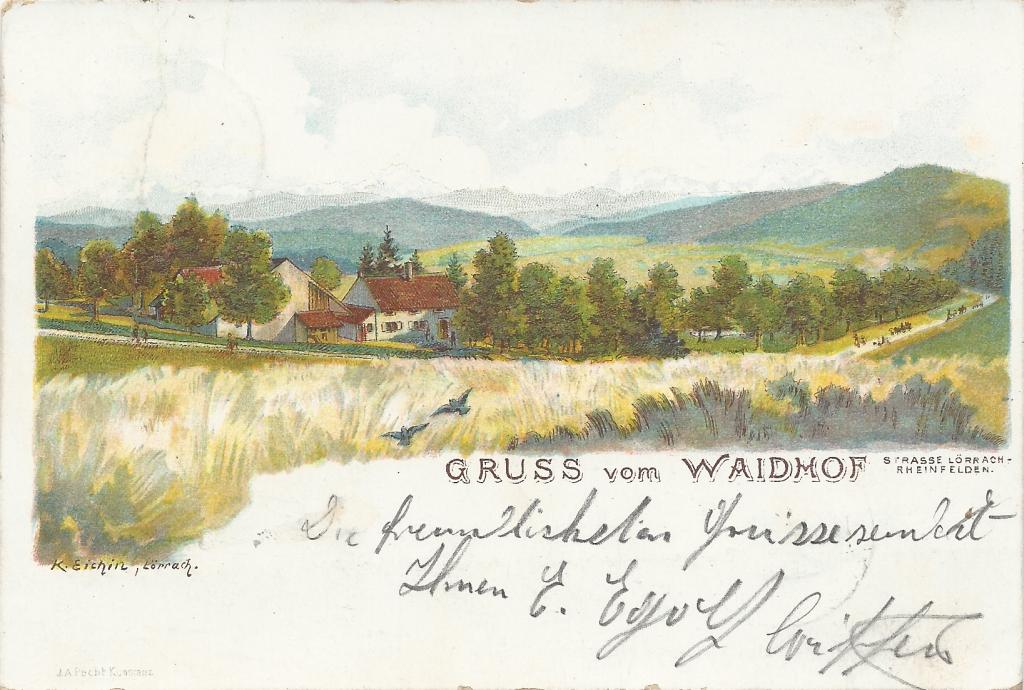 GRUSS vom WAIDHOF STRASSE LÖRRACH-
RHEINFELDEN.
Die freundlichsten Grüsse sendet
Ihnen E. Egolf
K. Eichin, Lörrach.
J.A. Pecht Konstanz